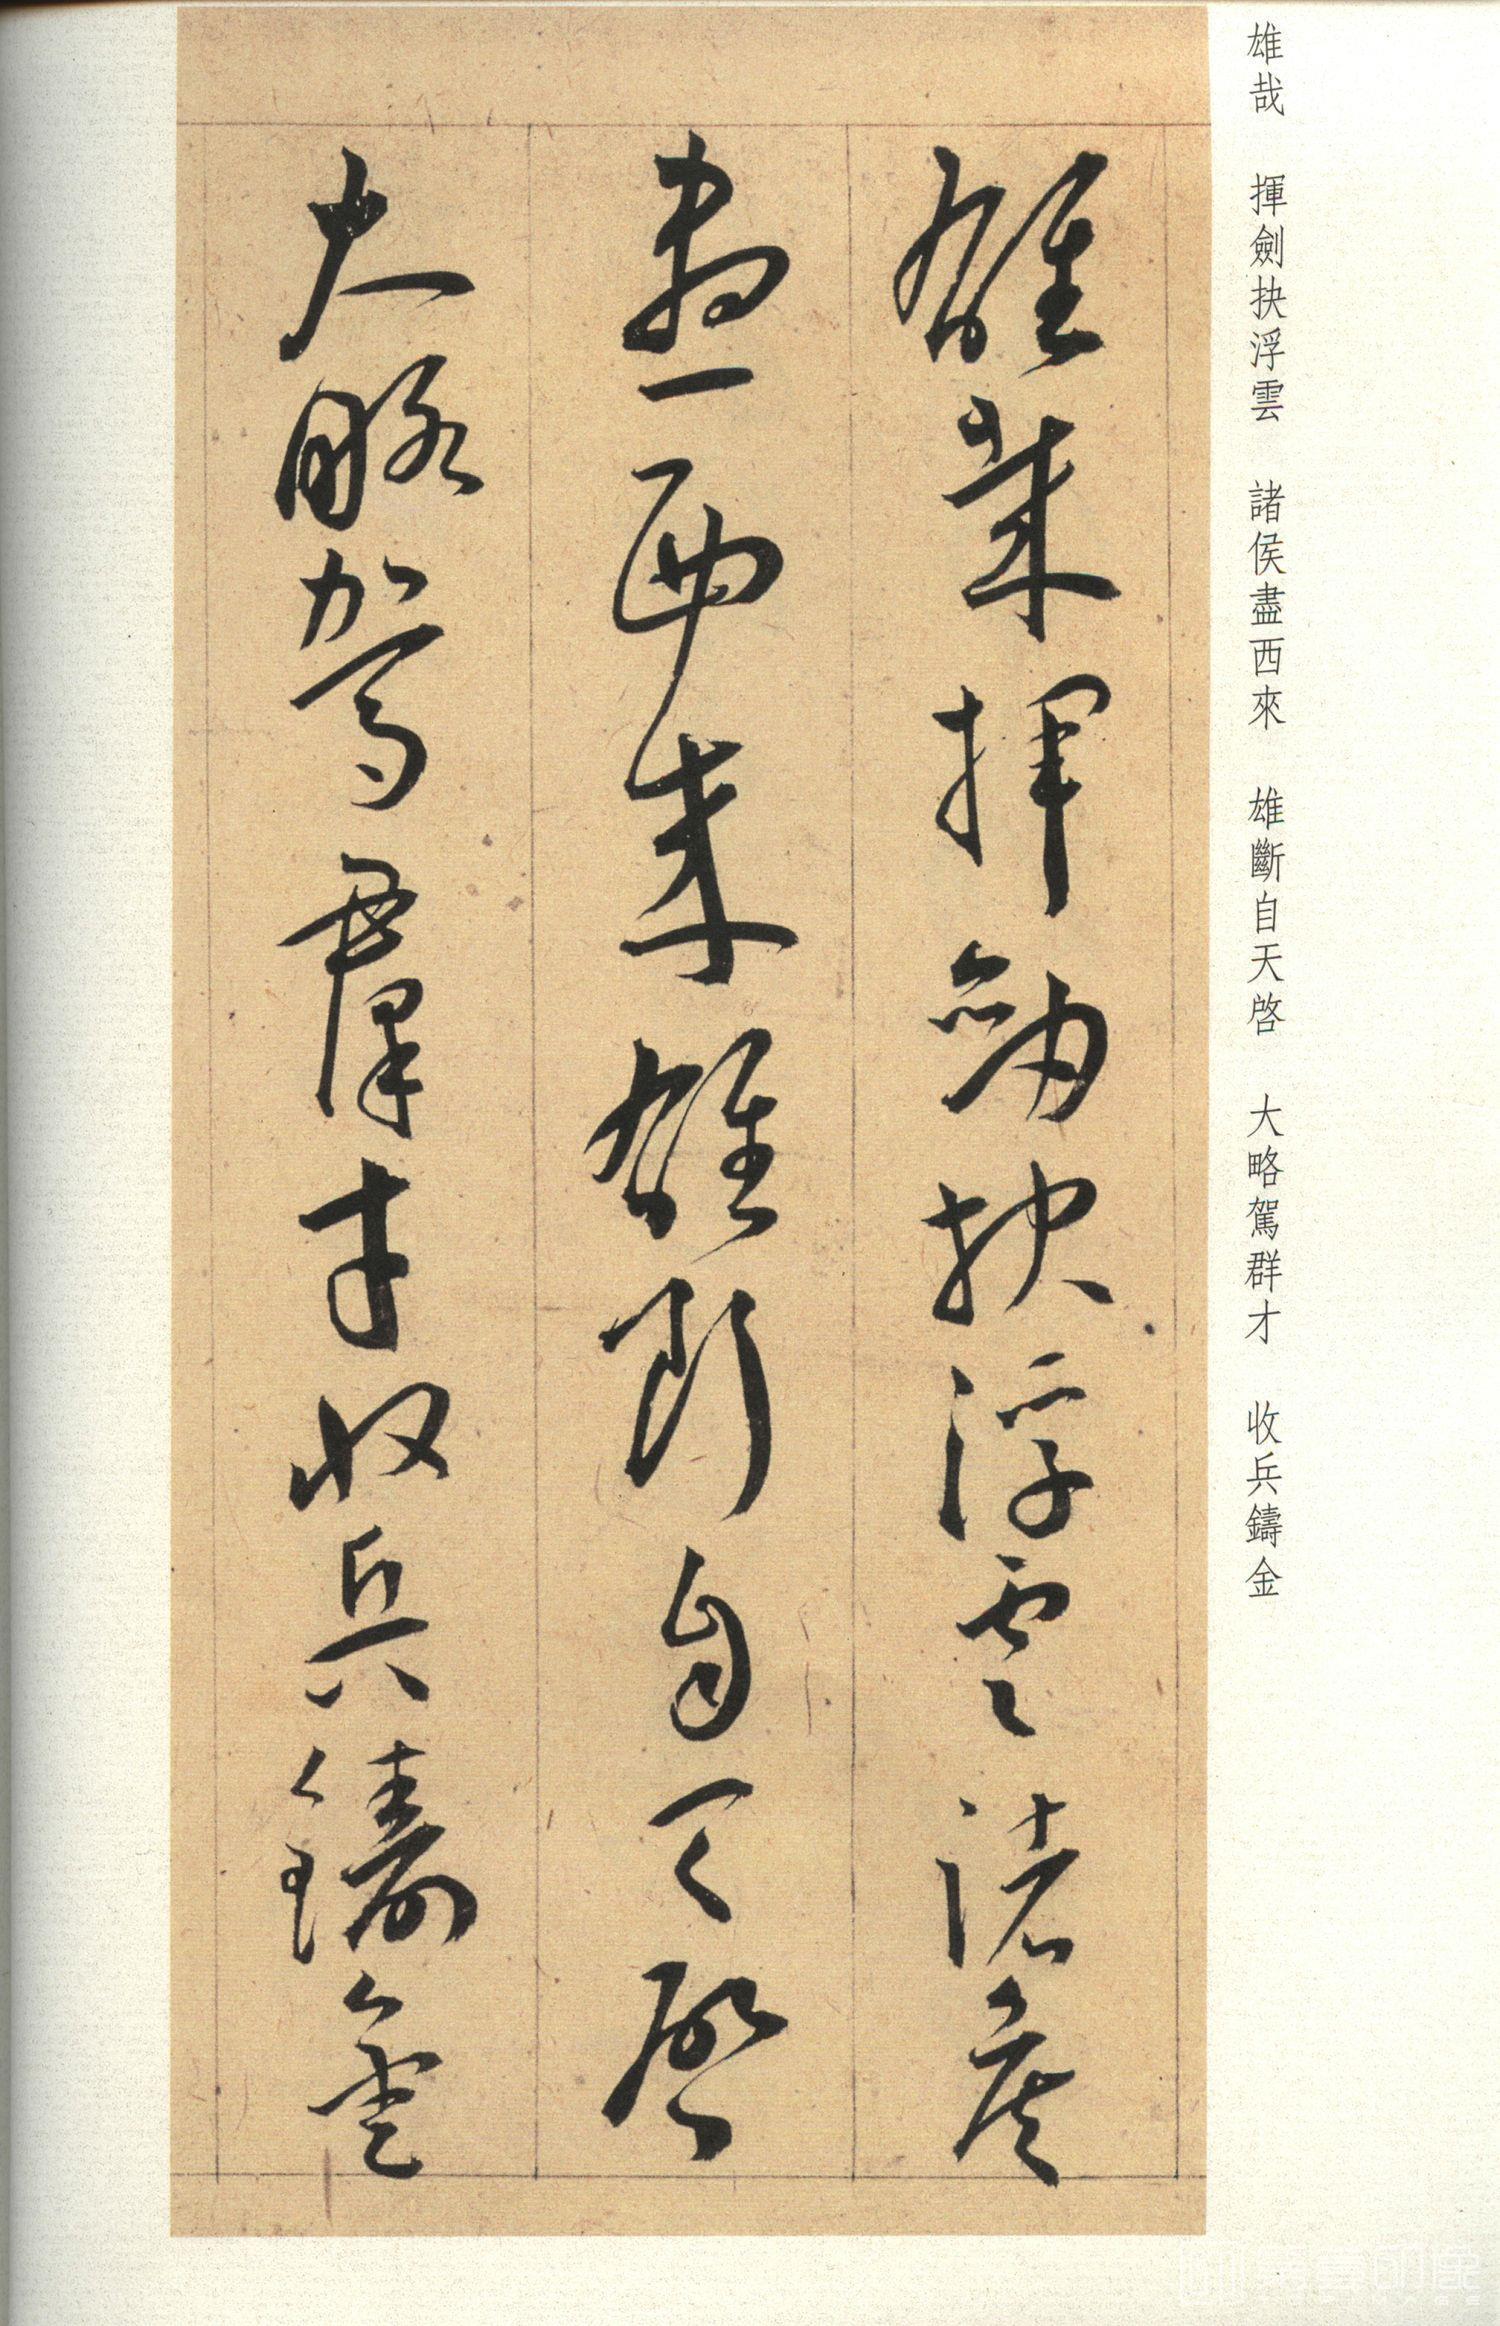 雄哉 揮劍抉浮雲 諸侯盡西來 雄斷自天啓 大略駕群才 收兵鑄金
雄哉揮劍抉浮雲諸侯
盡西來雄斷自天啓
大略駕羣才收兵鑄金